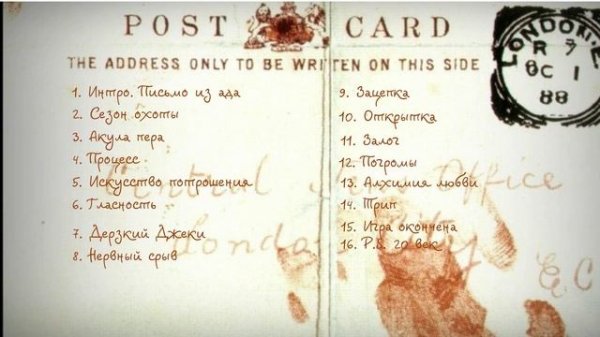 POST CARD
THE ADDRESS ONLY TO BE WRITTEN ON THIS SIDE
LONDON.E
R 7
OC 1
88
1. Интро. Письмо из ада
2. Сезон охоты
3. Акула пера
4. Процесс
5. Искусство потрошения
6. Гласность
7. Дерзкий Джеки
8. Нервный срыв
9. Зацепка
10. Открытка
11. Залог
12. Погромы
13. Алхимия любви
14. Трип
15. Игра окончена
16. P.S. 20 век
Central Office
London City
E.C